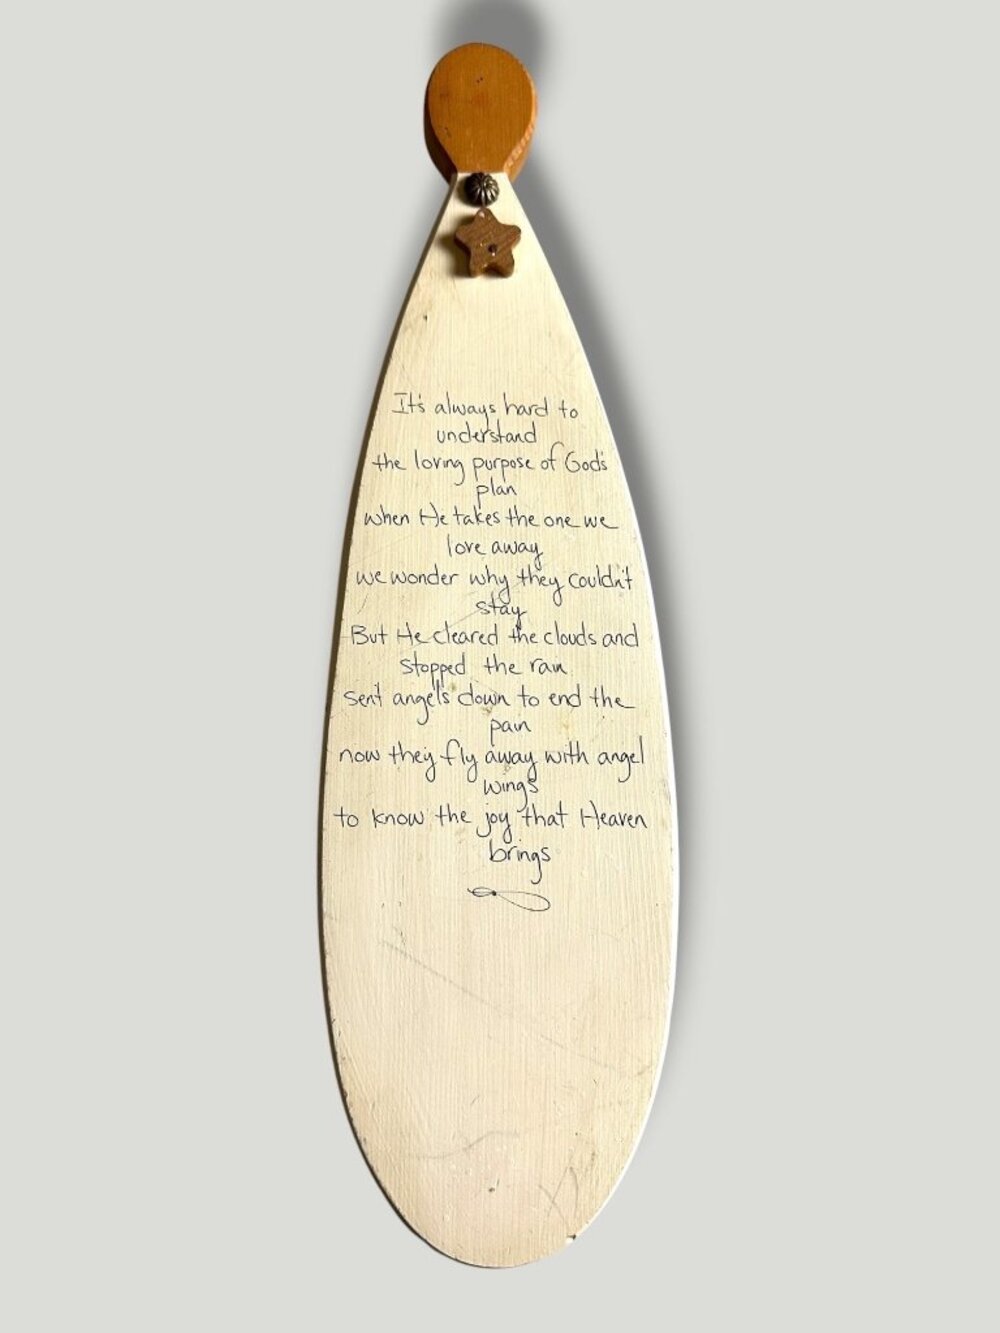 It's always hard to
understand
the loving purpose of God's
plan
when He takes the one we
love away
we wonder why they couldn't
stay
But He cleared the clouds and
stopped the rain
sent angels down to end the
pain
now they fly away with angel
wings
to know the joy that Heaven
brings